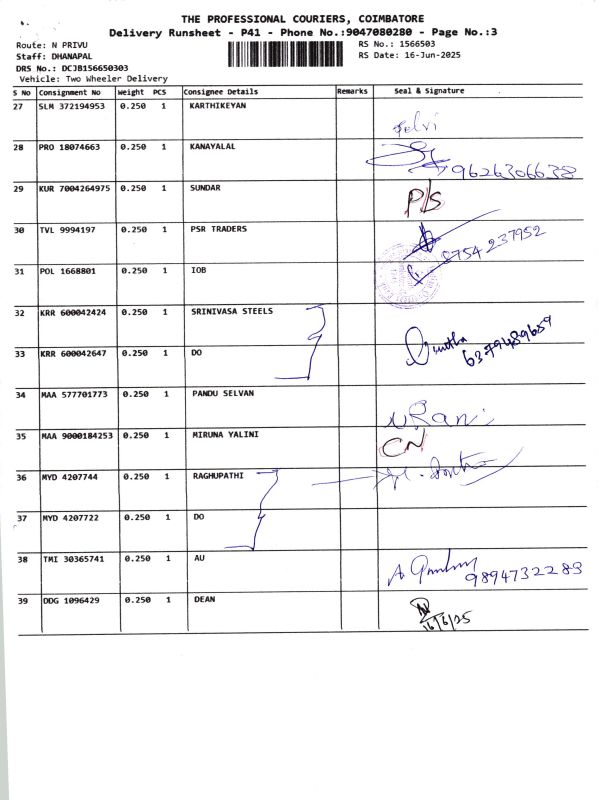 THE PROFESSIONAL COURIERS, COIMBATORE
Delivery Runsheet - P41 - Phone No.:9047080280 - Page No.:3
Route: N PRIVU RS No.: 1566503
Staff: DHANAPAL RS Date: 16-Jun-2025
DRS No.: DCJB156650303
Vehicle: Two Wheeler Delivery
S No Consignment No Weight PCS Consignee Details Remarks Seal & Signature
27 SLM 372194953 0.250 1 KARTHIKEYAN
Selvi
28 PRO 18074663 0.250 1 KANAYALAL
9626306638
29 KUR 7004264975 0.250 1 SUNDAR
P/S
30 TVL 9994197 0.250 1 PSR TRADERS
8754237952
31 POL 1668801 0.250 1 IOB
32 KRR 600042424 0.250 1 SRINIVASA STEELS
33 KRR 600042647 0.250 1 DO
6379489659
34 MAA 577701773 0.250 1 PANDU SELVAN
N Rani
35 MAA 9000184253 0.250 1 MIRUNA YALINI
CN
36 MYD 4207744 0.250 1 RAGHUPATHI
37 MYD 4207722 0.250 1 DO
38 TMI 30365741 0.250 1 AU
9894732283
39 DDG 1096429 0.250 1 DEAN
16/6/25